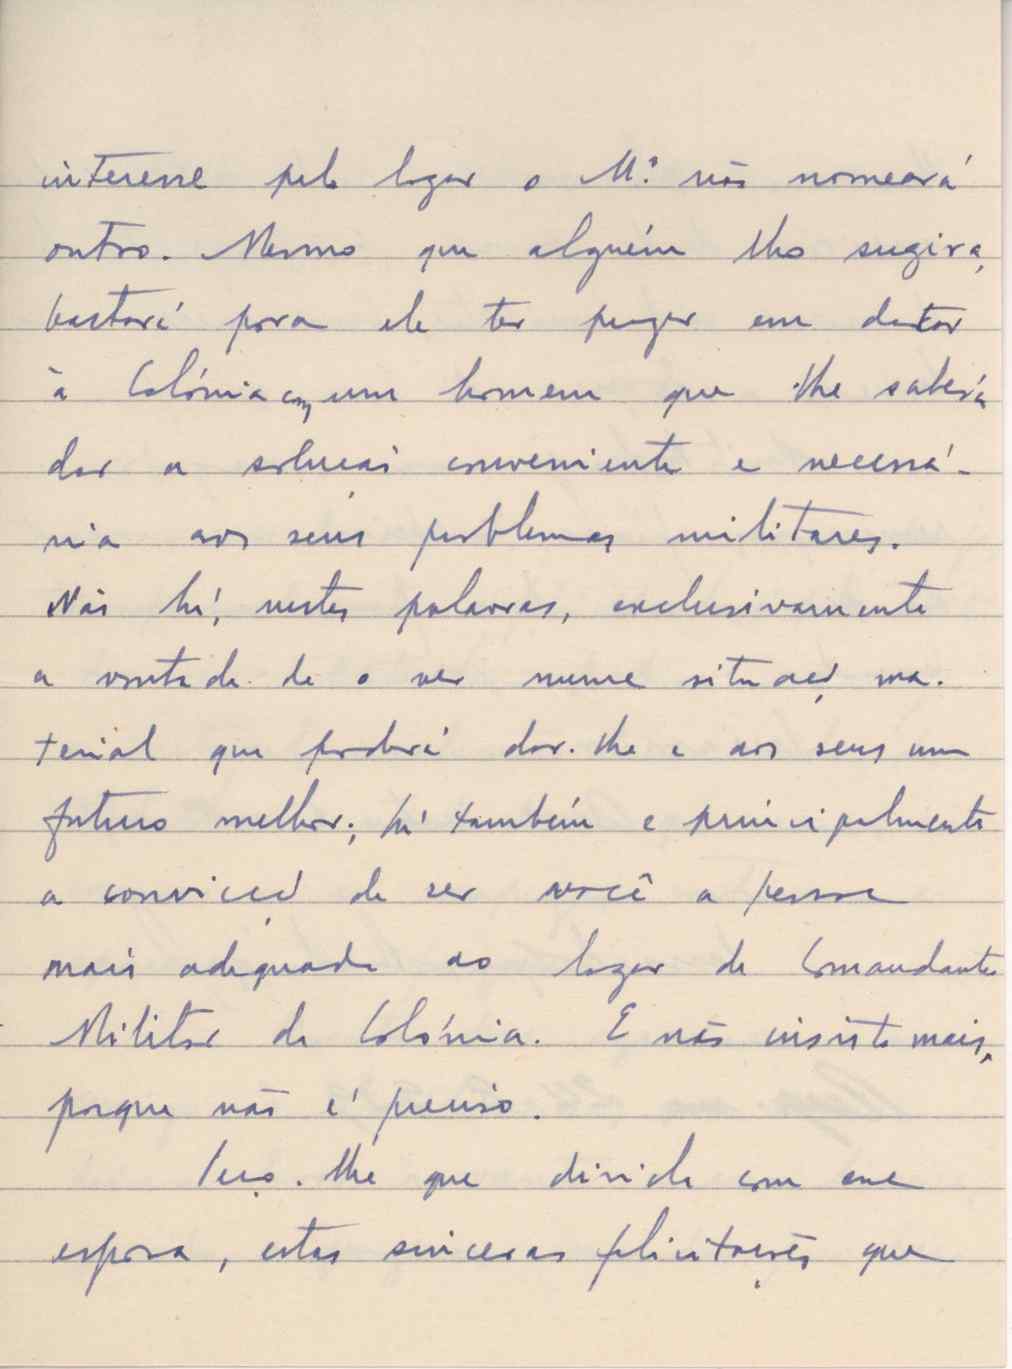 interesse pelo lugar o M.º não nomeará
outro. Mesmo que alguém lho sugira,
bastará para ele ter pezar em dotar
à Colónia com um homem que lhe saberá
dar a solução conveniente e necessá-
ria aos seus problemas militares.
Não há, nestas palavras, exclusivamente
a vontade de o ver numa situação ma-
terial que poderá dar-lhe e aos seus um
futuro melhor; há também e principalmente
a convicção de ser você a pessoa
mais adequada ao lugar de Comandante
Militar da Colónia. E não insisto mais,
porque não é preciso.
Peço-lhe que divida com sua
esposa, estas sinceras felicitações que